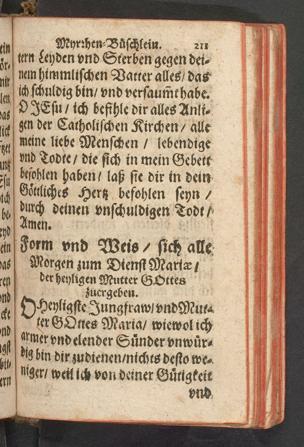 Myrrhen-Büschlein. 211
tern Leyden vnd Sterben gegen dei-
nem himmlischen Vatter alles / das
ich schuldig bin / vnd versaumt habe.
O JEsu / ich befihle dir alles Anli-
gen der Catholischen Kirchen / alle
meine liebe Menschen / lebendige
vnd Todte / die sich in mein Gebett
befohlen haben / laß sie dir in dein
Göttliches Hertz befohlen seyn /
durch deinen vnschuldigen Todt /
Amen.
Form vnd Weis / sich alle
Morgen zum Dienst Mariæ /
der heyligen Mutter GOttes
zuergeben.
O Heyligste Jungfraw / vnd Mut-
ter GOttes Maria / wiewol ich
armer vnd elender Sünder vnwür-
dig bin dir zudienen / nichts desto we-
niger / weil ich von deiner Gütigkeit
vnd